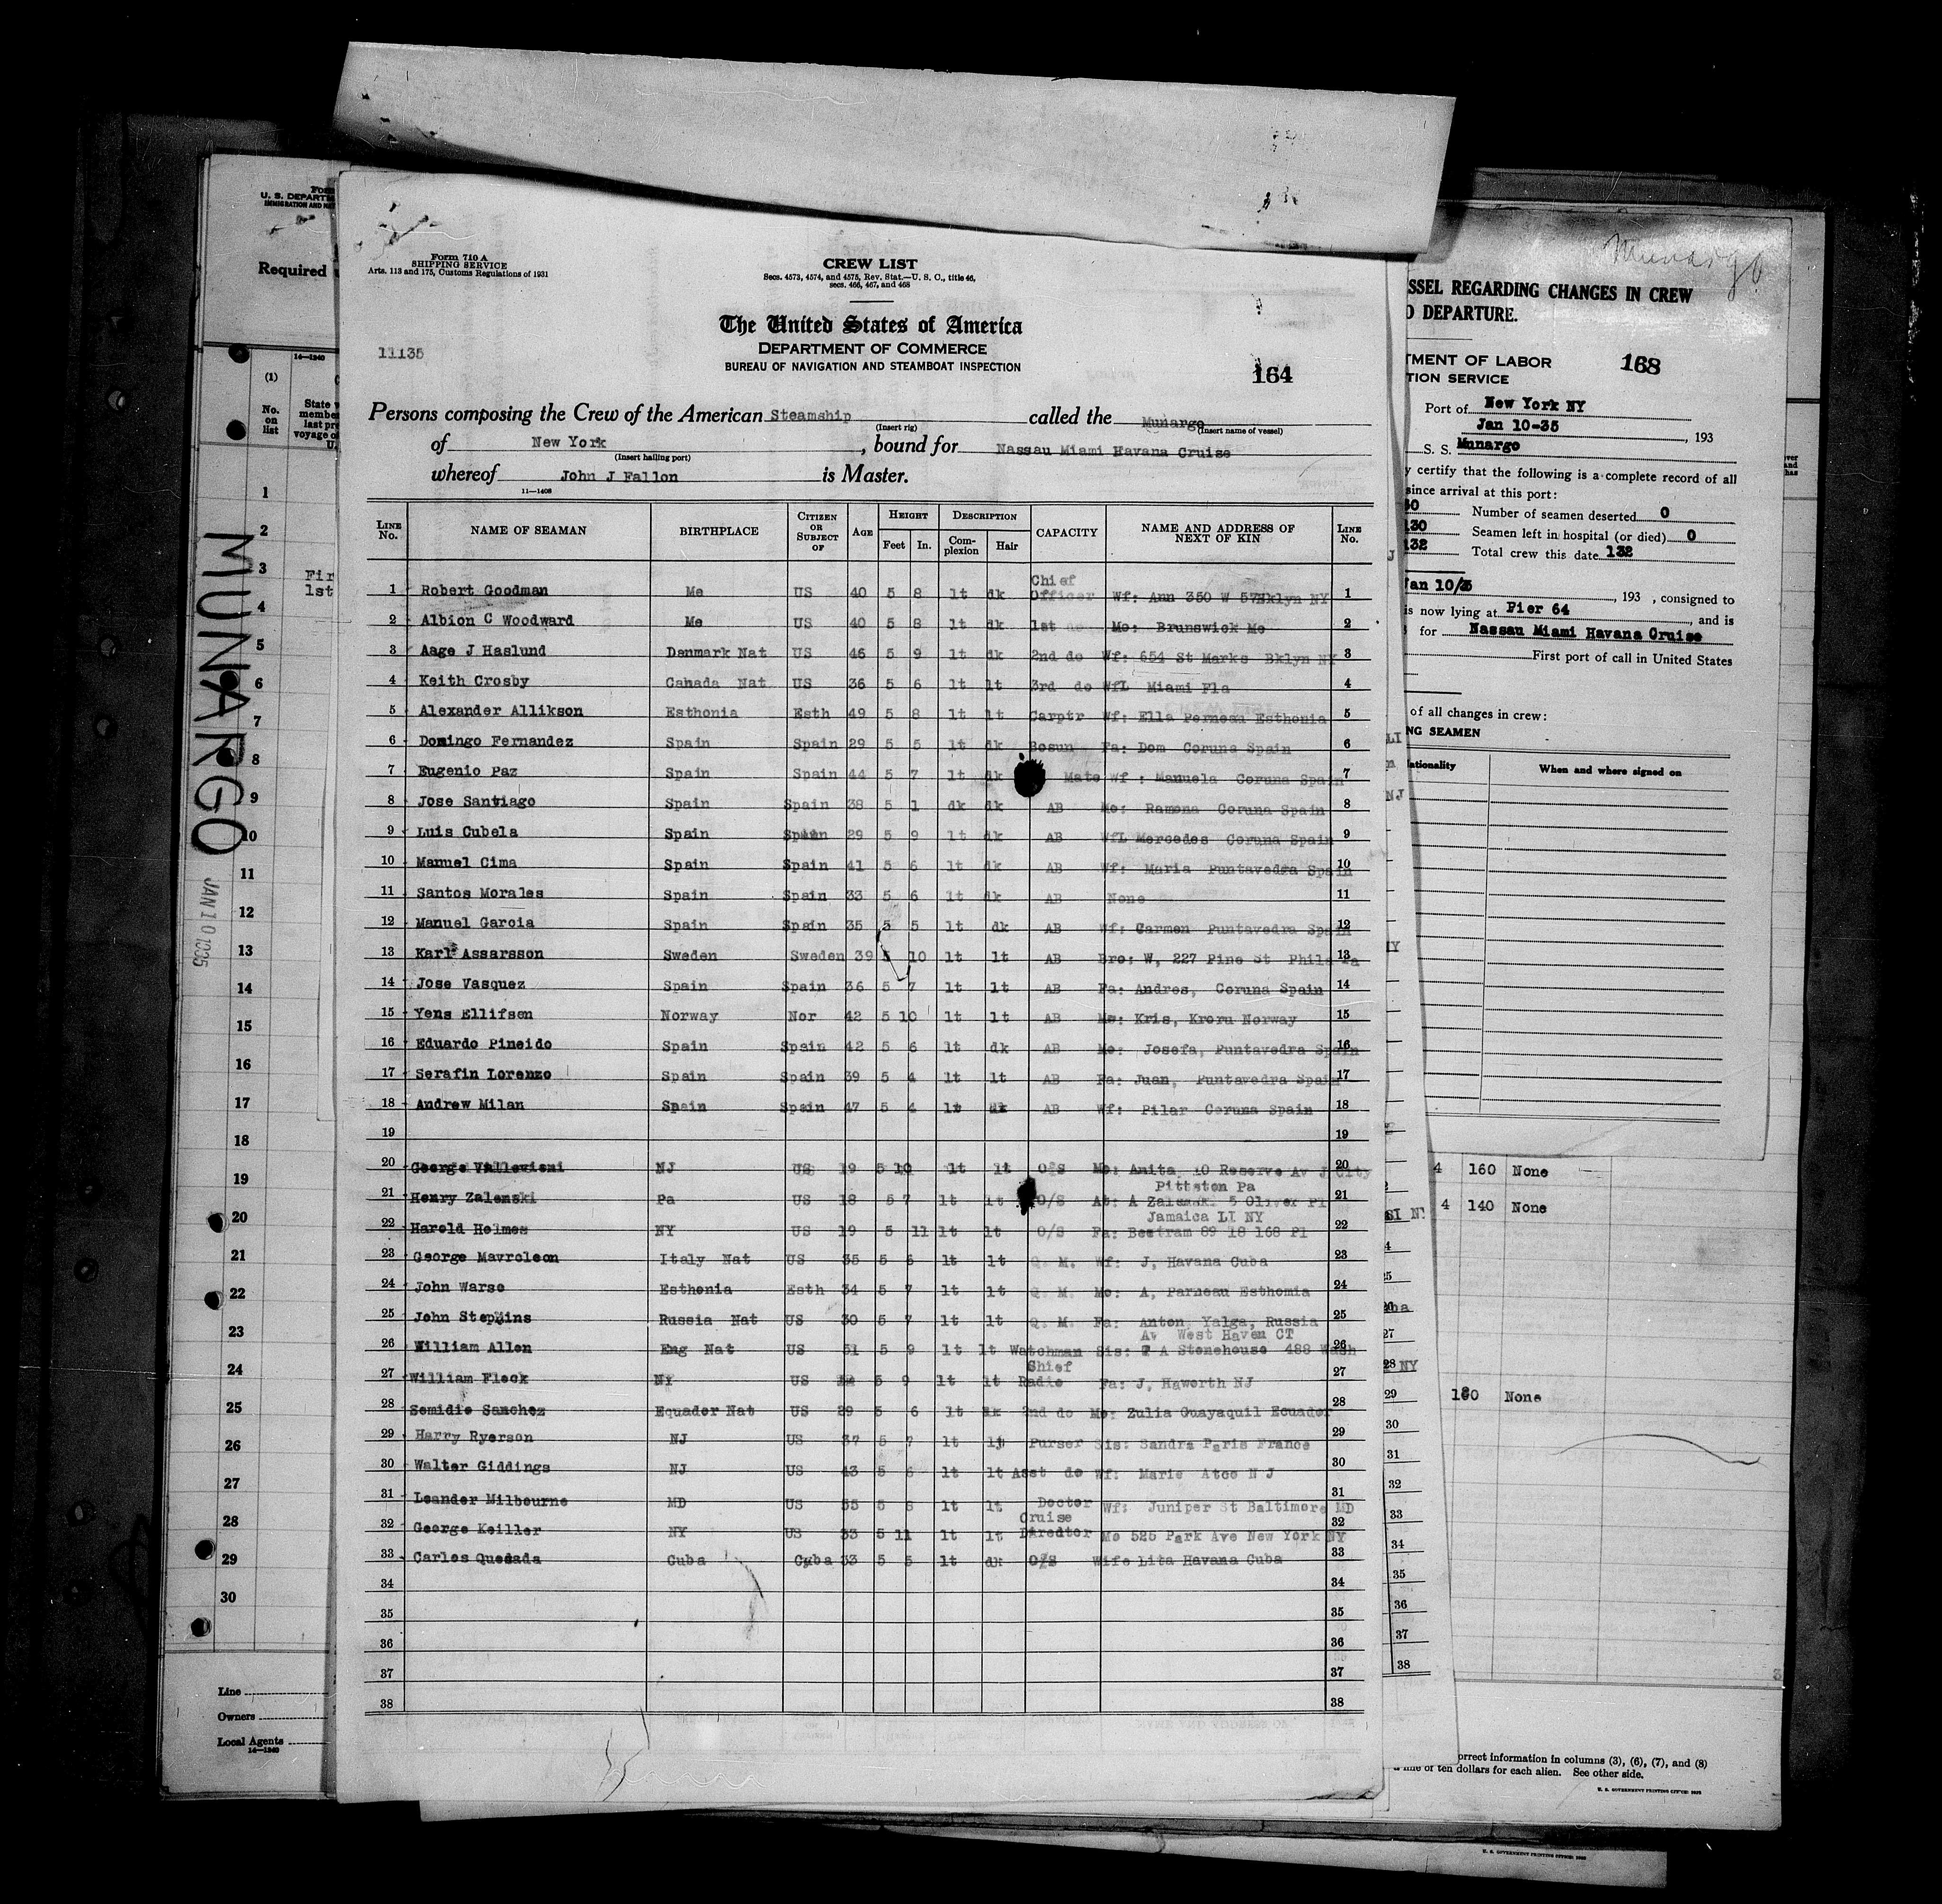 Form 710 A
SHIPPING SERVICE
Arts. 113 and 175, Customs Regulations of 1931
CREW LIST
Secs. 4573, 4574, and 4575, Rev. Stat.—U. S. C., title 46,
secs. 466, 467, and 468
The United States of America
DEPARTMENT OF COMMERCE
BUREAU OF NAVIGATION AND STEAMBOAT INSPECTION
11135
164
Persons composing the Crew of the American Steamship called the Munargo
(Insert rig) (Insert name of vessel)
of New York, bound for Nassau Miami Havana Cruise
(Insert hailing port)
whereof John J Fallon is Master.
11—1408
LINE No. NAME OF SEAMAN BIRTHPLACE CITIZEN OR SUBJECT OF AGE HEIGHT Feet In. DESCRIPTION Complexion Hair CAPACITY NAME AND ADDRESS OF NEXT OF KIN LINE No.
1 Robert Goodman Me US 40 5 8 lt dk Chief Officer Wf: Ann 350 W 57 Bklyn NY 1
2 Albion C Woodward Me US 40 5 8 lt dk 1st do Mo: Brunswick Me 2
3 Aage J Haslund Danmark Nat US 46 5 9 lt dk 2nd do Wf: 654 St Marks Bklyn NY 3
4 Keith Crosby Canada Nat US 36 5 6 lt lt 3rd do WfL Miami Fla 4
5 Alexander Allikson Esthonia Esth 49 5 8 lt lt Carptr Wf: Ella Perneau Esthonia 5
6 Domingo Fernandez Spain Spain 29 5 5 lt dk Bosun Fa: Dom Coruna Spain 6
7 Eugenio Paz Spain Spain 44 5 7 lt dk Mate Wf : Manuela Coruna Spain 7
8 Jose Santiago Spain Spain 38 5 1 dk dk AB Mo: Ramona Coruna Spain 8
9 Luis Cubela Spain Spain 29 5 9 lt dk AB WfL Mercedes Coruna Spain 9
10 Manuel Cima Spain Spain 41 5 6 lt dk AB Wf: Maria Puntavedra Spain 10
11 Santos Morales Spain Spain 33 5 6 lt dk AB None 11
12 Manuel Garcia Spain Spain 35 5 5 lt dk AB Wf: Carmen Puntavedra Spain 12
13 Karl Assarsson Sweden Sweden 39 5 10 lt lt AB Bro: W, 227 Pine St Phila Pa 13
14 Jose Vasquez Spain Spain 36 5 7 lt lt AB Fa: Andres, Coruna Spain 14
15 Yens Ellifsen Norway Nor 42 5 10 lt lt AB Mo: Kris, Kroru Norway 15
16 Eduardo Pineido Spain Spain 42 5 6 lt dk AB Mo: Josefa, Puntavedra Spain 16
17 Serafin Lorenzo Spain Spain 39 5 4 lt lt AB Fa: Juan, Puntavedra Spain 17
18 Andrew Milan Spain Spain 47 5 4 lt dk AB Wf: Pilar Coruna Spain 18
19 19
20 George NJ US 19 5 10 lt lt O/S Mo: Anita 10 Reserve Av J City 20
Pittston Pa
21 Henry Zalenski Pa US 18 5 7 lt lt O/S A 5 Oliver Pl 21
Jamaica LI NY
22 Harold Holmes NY US 19 5 11 lt lt O/S Fa: Bertram 89 18 168 Pl 22
23 George Mavroleon Italy Nat US 35 5 6 lt lt Q. M. Wf: J, Havana Cuba 23
24 John Warse Esthonia Esth 34 5 7 lt lt Q. M. Mo: A, Parneau Esthomia 24
25 John Russia Nat US 30 5 7 lt lt Q. M. Fa: Anton, Yalga, Russia 25
Av West Haven CT
26 William Allen Eng Nat US 51 5 9 lt lt Watchman Sis: A Stonehouse 488 Wash 26
27 William Fleck NY US 5 9 lt lt Chief Radio Fa: J, Haworth NJ 27
28 Semidio Sanchez Equador Nat US 29 5 6 lt dk 2nd do Mo: Zulia Guayaquil Ecuador 28
29 Harry Ryerson NJ US 37 5 7 lt lt Purser Sis: Sandra Paris France 29
30 Walter Giddings NJ US 43 5 6 lt lt Asst do Wf: Marie Atco N J 30
31 Leander Milbourne MD US 55 5 8 lt lt Doctor Wf: Juniper St Baltimore MD 31
32 George Keiller NY US 33 5 11 lt lt Cruise Director Mo 525 Park Ave New York NY 32
33 Carlos Quesada Cuba Cuba 33 5 5 lt dk O/S Wife Lita Havana Cuba 33
34 34
35 35
36 36
37 37
38 38
U. S. DEPARTM
IMMIGRATION AND NAT
Required
14—1240
(1)
No. on list
State w
member
last pre
voyage of
U.
1
2
3 Fir
1st
4
5
6
7
8
9
10
11
12
13
14
15
16
17
18
19
20
21
22
23
24
25
26
27
28
29
30
Line
Owners
Local Agents
14—1240
MUNARGO
JAN 10 1935
Munargo
SSEL REGARDING CHANGES IN CREW
O DEPARTURE.
TMENT OF LABOR
168
TION SERVICE
Port of New York NY
Jan 10-35, 193
S. S. Munargo
y certify that the following is a complete record of all
since arrival at this port:
Number of seamen deserted 0
130 Seamen left in hospital (or died) 0
132 Total crew this date 132
Jan 10/3, 193 , consigned to
is now lying at Pier 64, and is
for Nassau Miami Havana Cruise
First port of call in United States
of all changes in crew:
NG SEAMEN
ationality When and where signed on
4 160 None
4 140 None
180 None
28 NY
29
30
31
32
33
34
35
36
37
38
orrect information in columns (3), (6), (7), and (8)
a fine of ten dollars for each alien. See other side.
U. S. GOVERNMENT PRINTING OFFICE
U. S. GOVERNMENT PRINTING OFFICE